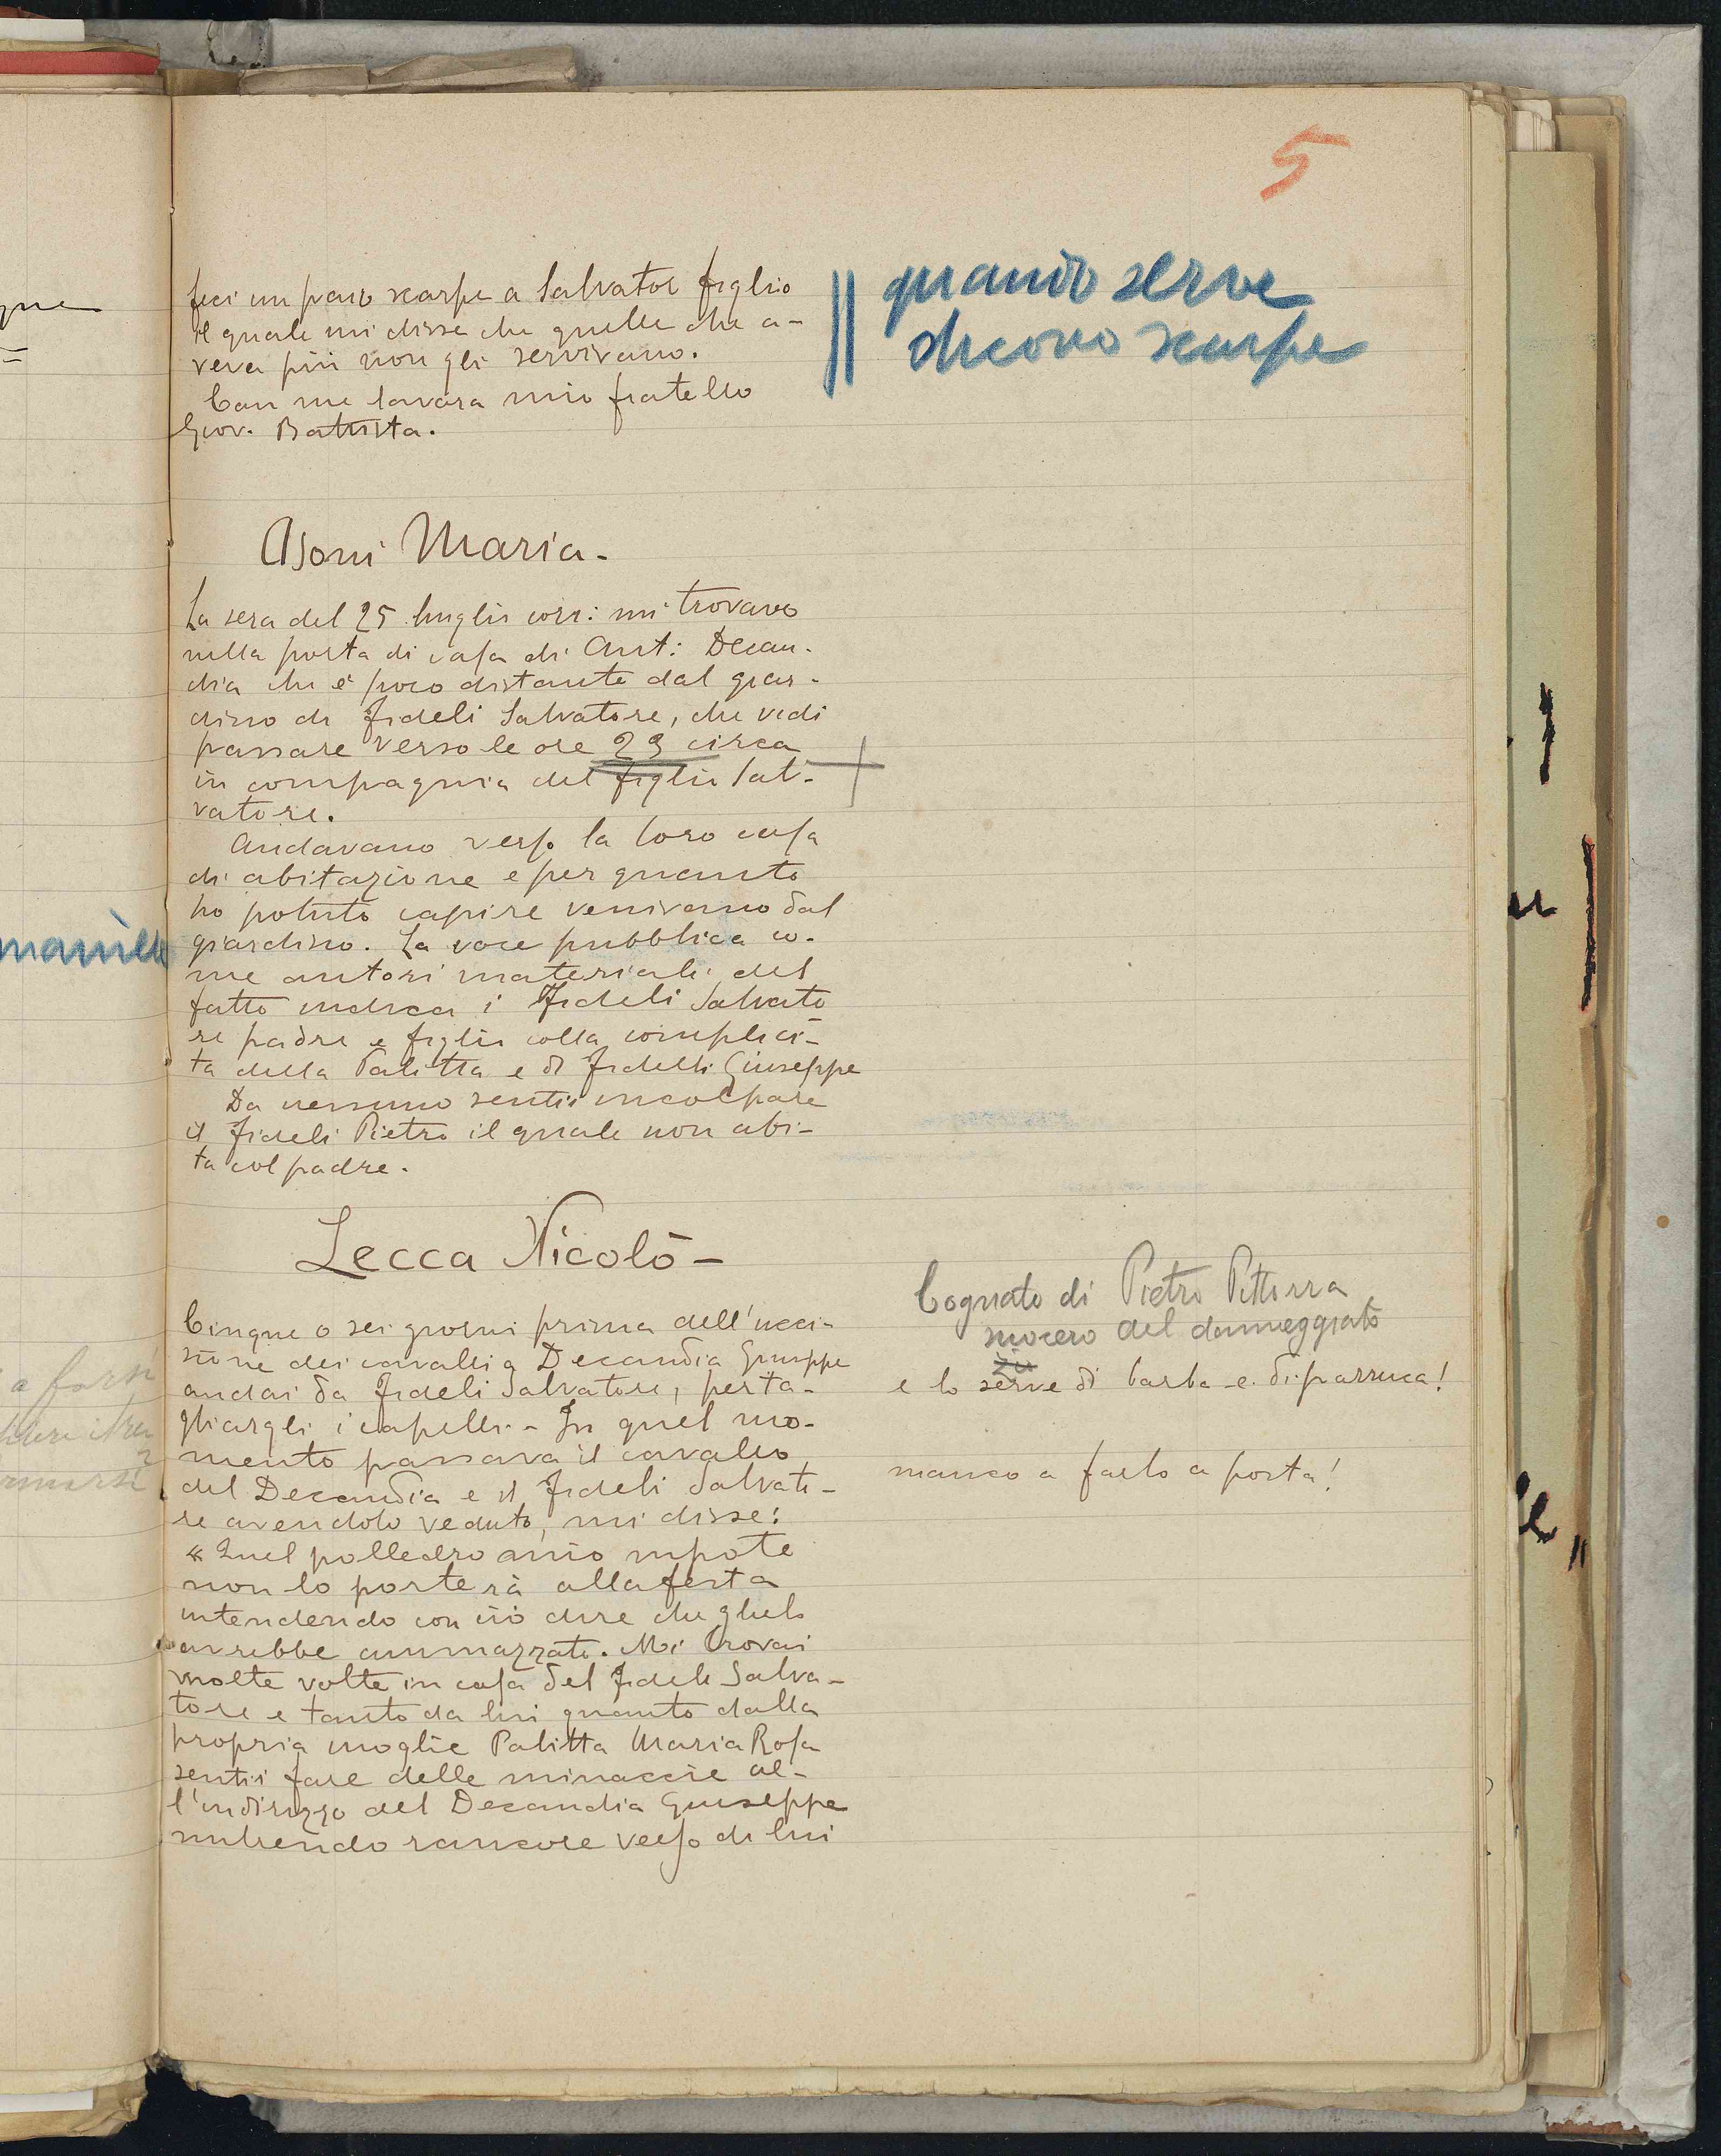 5
feci un paio scarpe a Salvatore figlio
il quale mi disse che quelle che a-
veva più non gli servivano.
Con me lavora mio fratello
Giov. Battista.
quando serve
dicono scarpe
Asoni Maria -
La sera del 25 luglio corr: mi trovavo
nella porta di casa di Ant: Decan-
dia che è poco distante dal giar-
dino di Fideli Salvatore, che vidi
passare verso le ore 23 circa
in compagnia del figlio Sal-
vatore.
Andavano verso la loro casa
di abitazione e per quanto
ho potuto capire venivano dal
giardino. La voce pubblica co-
me autori materiali del
fatto indica i Fideli Salvato
re padre e figlio colla complici-
tà della Palitta e di Fideli Giuseppe
Da nessuno sentii incolpare
il Fideli Pietro il quale non abi-
ta col padre.
Lecca Nicolò -
Cinque o sei giorni prima dell'ucci-
sione dei cavalli a Decandia Giuseppe
andai da Fideli Salvatore, per ta-
gliargli i capelli - In quel mo-
mento passava il cavallo
del Decandia e il Fideli Salvato-
re avendolo veduto, mi disse:
"Quel polledro mio nipote
non lo porterà alla festa
intendendo con ciò dire che glielo
avrebbe ammazzato. Mi trovai
molte volte in casa del Fideli Salva-
tore e tanto da lui quanto dalla
propria moglie Palitta Maria Rosa
sentii fare delle minaccie al-
l'indirizzo del Decandia Giuseppe
nutrendo rancore verso di lui
Cognato di Pietro Pittorra
suocero del danneggiato
e lo serve di barba e di parruca!
manco a farlo a posta!